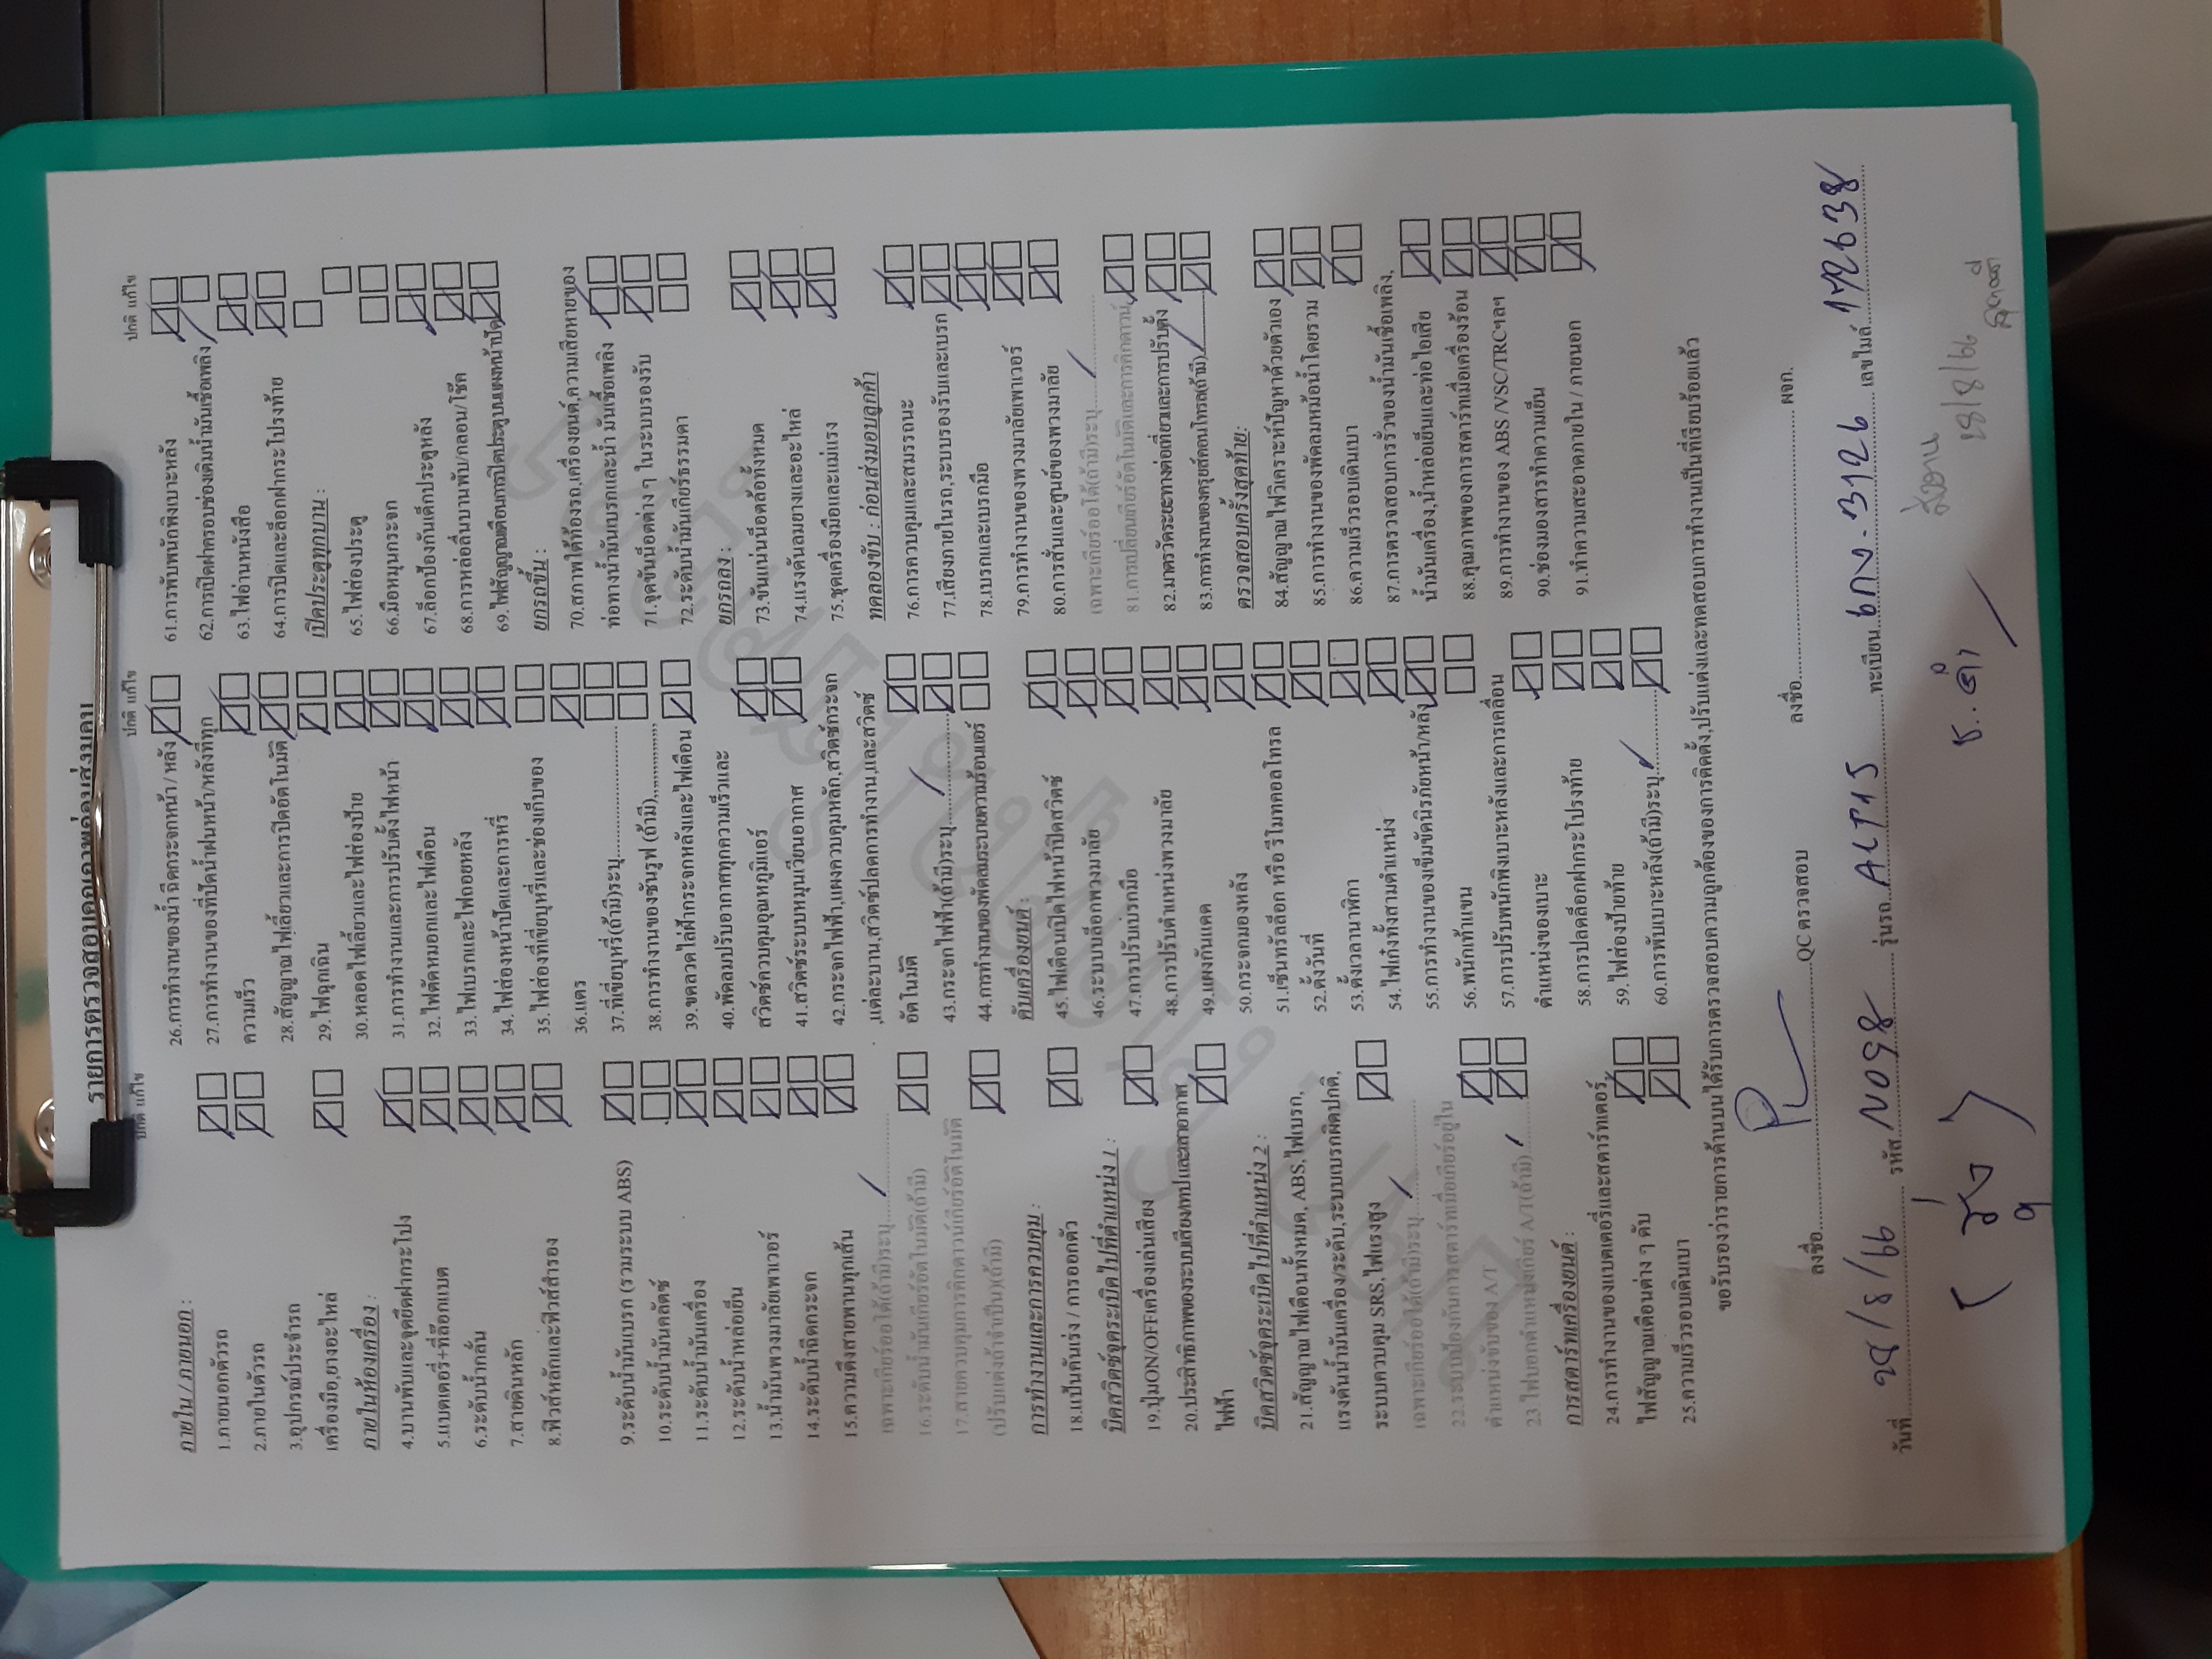 รายการตรวจสอบคุณภาพก่อนส่งมอบ
ปกติ แก้ไข
ภายใน / ภายนอก :
1.ภายนอกตัวรถ
2.ภายในตัวรถ
3.อุปกรณ์ประจำรถ
เครื่องมือ,ยางอะไหล่
ภายในห้องเครื่อง :
4.บานพับและจุดยึดฝากระโปง
5.แบตเตอรี่+ที่ล๊อกแบต
6.ระดับน้ำกลั่น
7.สายดินหลัก
8.ฟิวส์หลักและฟิวส์สำรอง
9.ระดับน้ำมันเบรก (รวมระบบ ABS)
10.ระดับน้ำมันคลัตช์
11.ระดับน้ำมันเครื่อง
12.ระดับน้ำหล่อเย็น
13.น้ำมันพวงมาลัยเพาเวอร์
14.ระดับน้ำฉีดกระจก
15.ความตึงสายพานทุกเส้น
เฉพาะเกียร์ออโต้(ถ้ามี)ระบุ
16.ระดับน้ำมันเกียร์อัตโนมัติ(ถ้ามี)
17.สายควบคุมการคิกดาวน์เกียร์อัตโนมัติ
(ปรับแต่งถ้าจำเป็น)(ถ้ามี)
การทำงานและการควบคุม :
18.แป้นคันเร่ง / การออกตัว
บิดสวิตช์จุดระเบิดไปที่ตำแหน่ง 1 :
19.ปุ่มON/OFFเครื่องเล่นเสียง
20.ประสิทธิภาพของระบบเสียง/เทปและสายอากาศ
ไฟฟ้า
บิดสวิตช์จุดระเบิดไปที่ตำแหน่ง 2 :
21.สัญญาณไฟเตือนทั้งหมด, ABS,ไฟเบรก,
แรงดันน้ำมันเครื่อง/ระดับ,ระบบเบรกผิดปกติ,
ระบบควบคุม SRS,ไฟแรงสูง
เฉพาะเกียร์ออโต้(ถ้ามี)ระบุ
22.ระบบป้องกันการสตาร์ทเมื่อเกียร์อยู่ใน
ตำแหน่งขับของ A/T
23.ไฟบอกตำแหน่งเกียร์ A/T(ถ้ามี)
การสตาร์ทเครื่องยนต์ :
24.การทำงานของแบตเตอรี่และสตาร์ทเตอร์,
ไฟสัญญาณเตือนต่าง ๆ ดับ
25.ความเร็วรอบเดินเบา
ปกติ แก้ไข
26.การทำงานของน้ำฉีดกระจกหน้า / หลัง
27.การทำงานของที่ปัดน้ำฝนหน้า/หลังที่ทุก
ความเร็ว
28.สัญญาณไฟเลี้ยวและการปิดอัตโนมัติ
29.ไฟฉุกเฉิน
30.หลอดไฟเลี้ยวและไฟส่องป้าย
31.การทำงานและการปรับตั้งไฟหน้า
32.ไฟตัดหมอกและไฟเตือน
33.ไฟเบรกและไฟถอยหลัง
34.ไฟส่องหน้าปัดและการหรี่
35.ไฟส่องที่เขี่ยบุหรี่และช่องเก็บของ
36.แตร
37.ที่เขี่ยบุหรี่(ถ้ามี)ระบุ
38.การทำงานของซันรูฟ (ถ้ามี)
39.ขดลวดไล่ฝ้ากระจกหลังและไฟเตือน
40.พัดลมปรับอากาศทุกความเร็วและ
สวิตช์ควบคุมอุณหภูมิแอร์
41.สวิตช์ระบบหมุนเวียนอากาศ
42.กระจกไฟฟ้า,แผงควบคุมหลัก,สวิตช์กระจก
,แต่ละบาน,สวิตช์ปลดการทำงาน,และสวิตช์
อัตโนมัติ
43.กระจกไฟฟ้า(ถ้ามี)ระบุ
44.การทำงานของพัดลมระบายความร้อนแอร์
ดับเครื่องยนต์ :
45.ไฟเตือนเปิดไฟหน้าปิดสวิตช์
46.ระบบบล็อกพวงมาลัย
47.การปรับเบรกมือ
48.การปรับตำแหน่งพวงมาลัย
49.แผงกันแดด
50.กระจกมองหลัง
51.เซ็นทรัลล็อก หรือ รีโมทคอลโทรล
52.ตั้งวันที่
53.ตั้งเวลานาฬิกา
54.ไฟเก๋งทั้งสามตำแหน่ง
55.การทำงานของเข็มขัดนิรภัยหน้า/หลัง
56.พนักเท้าแขน
57.การปรับพนักพิงเบาะหลังและการเคลื่อน
ตำแหน่งของเบาะ
58.การปลดล็อกฝากระโปรงท้าย
59.ไฟส่องป้ายท้าย
60.การพับเบาะหลัง(ถ้ามี)ระบุ
ปกติ แก้ไข
61.การพับพนักพิงเบาะหลัง
62.การเปิดฝาครอบช่องเติมน้ำมันเชื้อเพลิง
63.ไฟอ่านหนังสือ
64.การปิดและล็อกฝากระโปรงท้าย
เปิดประตูทุกบาน :
65.ไฟส่องประตู
66.มือหมุนกระจก
67.ล็อกป้องกันเด็กประตูหลัง
68.การหล่อลื่นบานพับ/กลอน/โช๊ค
69.ไฟสัญญาณเตือนการปิดประตูบนแผงหน้าปัด
ยกรถขึ้น :
70.สภาพใต้ท้องรถ,เครื่องยนต์,ความเสียหายของ
ท่อทางน้ำมันเบรกและน้ำมันเชื้อเพลิง
71.จุดขันน็อตต่าง ๆ ในระบบรองรับ
72.ระดับน้ำมันเกียร์ธรรมดา
ยกรถลง :
73.ขันแน่นน็อตล้อทั้งหมด
74.แรงดันลมยางและอะไหล่
75.ชุดเครื่องมือและแม่แรง
ทดลองขับ : ก่อนส่งมอบลูกค้า
76.การควบคุมและสมรรถนะ
77.เสียงภายในรถ,ระบบรองรับและเบรก
78.เบรกและเบรกมือ
79.การทำงานของพวงมาลัยเพาเวอร์
80.การสั่นและศูนย์ของพวงมาลัย
เฉพาะเกียร์ออโต้(ถ้ามี)ระบุ
81.การเปลี่ยนเกียร์อัตโนมัติและการคิกดาวน์
82.มาตรวัดระยะทางต่อเที่ยวและการปรับตั้ง
83.การทำงานของครุยส์คอนโทรล(ถ้ามี)
ตรวจสอบครั้งสุดท้าย:
84.สัญญาณไฟวิเคราะห์ปัญหาด้วยตัวเอง
85.การทำงานของพัดลมหม้อน้ำโดยรวม
86.ความเร็วรอบเดินเบา
87.การตรวจสอบการรั่วของน้ำมันเชื้อเพลิง,
น้ำมันเครื่อง,น้ำหล่อเย็นและท่อไอเสีย
88.คุณภาพของการสตาร์ทเมื่อเครื่องร้อน
89.การทำงานของ ABS /VSC/TRCฯลฯ
90.ช่องมองสารทำความเย็น
91.ทำความสะอาดภายใน / ภายนอก
ขอรับรองว่ารายการด้านบนได้รับการตรวจสอบความถูกต้องของการติดตั้ง,ปรับแต่งและทดสอบการทำงานเป็นที่เรียบร้อยแล้ว
ลงชื่อ QC ตรวจสอบ ลงชื่อ ผจก.
วันที่ 28/8/66 รหัส N098 รุ่นรถ ALTIS ทะเบียน ขกง-3126 เลขไมล์ 172638
28/8/66